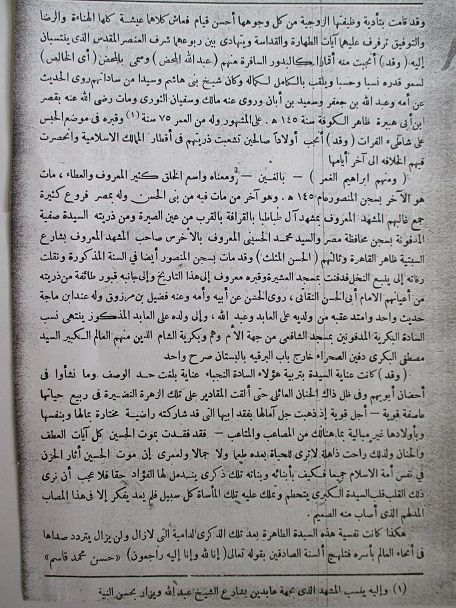 وقد قامت بتأدية وظيفتها الزوجية من كل وجوهها أحسن قيام فعاش كلاهما عيشة كلها الهناءة والرضا
والتوفيق ترفرف عليهما آيات الطهارة والقداسة ويتهادى بين ربوعهما شرف العنصر المقدس الذى ينتسبان
إليه (وقد) أنجبت منه أقمارا كالبدور السافرة منهم (عبد الله المحض) وسمى بالمحض أى الخالص
لسمو قدره نسبا وحسبا ويلقب بالكامل لكماله وكان شيخ بنى هاشم وسيدا من ساداتهم روى الحديث
عن أمه وعبد الله بن جعفر وسعيد بن أبان وروى عنه مالك وسفيان الثورى ومات رضى الله عنه بقصر
ابن أبى هبيرة ظاهر الكوفة سنة ١٤٥ هـ . على المشهور وله من العمر ٧٥ سنة (١) وقبره فى موضع الحبس
على شاطىء الفرات (وقد) أنجب أولادا صالحين تشعبت ذريتهم فى أقطار الممالك الاسلامية وانحصرت
فيهم الخلافه الى آخر أيامها
(ومنهم ابراهيم الغمر) — بالغين — ومعناه واسع الخلق كثير المعروف والعطاء، مات
هو الآخر بسجن المنصور عام ١٤٥ هـ . وهو آخر من مات فيه من بنى الحسن وله بمصر فروع كثيرة
جمع غالبهم المشهد المعروف بمشهد آل طباطبا بالقرافة بالقرب من عين الصيرة ومن ذريته السيدة صفية
المدفونة بسجن محافظة مصر والسيد محمد الحسينى المعروف بالأخرس صاحب المشهد المعروف بشارع
السبتية ظاهر القاهرة وثالثهم (الحسن المثلث) وقد مات بسجن المنصور أيضا فى السنة المذكورة ونقلت
رفاته إلى ينبع النخل فدفنت بمسجد العشيرة وقبره معروف إلى هذا التاريخ وإلى جانبه قبور طائفة من ذريته
من أعيانهم الامام أبى الحسن النقائى، روى الحسن عن أبيه وأمه وعنه فضيل بن مرزوق وله عند ابن ماجة
حديث واحد وامتد عقبه من ولديه على العابد وعبد الله، وإلى ولده على العابد المذكور ينتهى نسب
السادة البكرية المدفونين بمسجد الشافعى من جهة الأم وهم وبكرية الشام الذين منهم العالم الكبير السيد
مصطفى البكرى دفين الصحراء خارج باب البرقيه بالبستان صرح واحد
(وقد) كانت عناية السيدة بتربية هؤلاء السادة النجباء عناية بلغت حد الوصف وما نشأوا فى
أحضان أبويهم وفى ظل ذاك الحنان العائلى حتى ألقت المقادير على تلك الزهرة النضيرة فى ربيع حياتها
عاصفة قوية — أجل قوية إذ ذهبت جل آمالها بفقد ابيها الى قد شاركته راضية مختارة بمالها وبنفسها
وبأولادها غير مبالية بما هنالك من المصاعب والمتاعب — فقد فقدت بموت الحسين كل آيات العطف
والحنان ولذلك راحت ذاهلة لاترى للحياة بعده طعما ولا جمالا ولعمرى إن موت الحسين أثار الحزن
فى نفس أمة الاسلام جميعا فكيف بأبنائه وبناته تلك ذكرى يندمل لها الفؤاد حقا فلا عجب أن نرى
ذلك القلب قلب السيدة الكبرى يتحطم وتملك عليه تلك المأساة كل سبيل فلم يعد يفكر إلا فى هذا المصاب
المدلهم الذى أصاب منه الصميم
هكذا كانت نفسية هذه السيدة الطاهرة بعد تلك الذكرى الدامية التى لا زال ولن يزال يتردد صداها
فى أنحاء العالم بأسره فتلهج ألسنة الصادقين بقوله تعالى (إنا لله وإنا إليه راجعون) «حسن محمد قاسم»
(١) . وإليه ينسب المشهد الذى بجهة عابدين بشارع الشيخ عبد الله ويزار بحسن النية